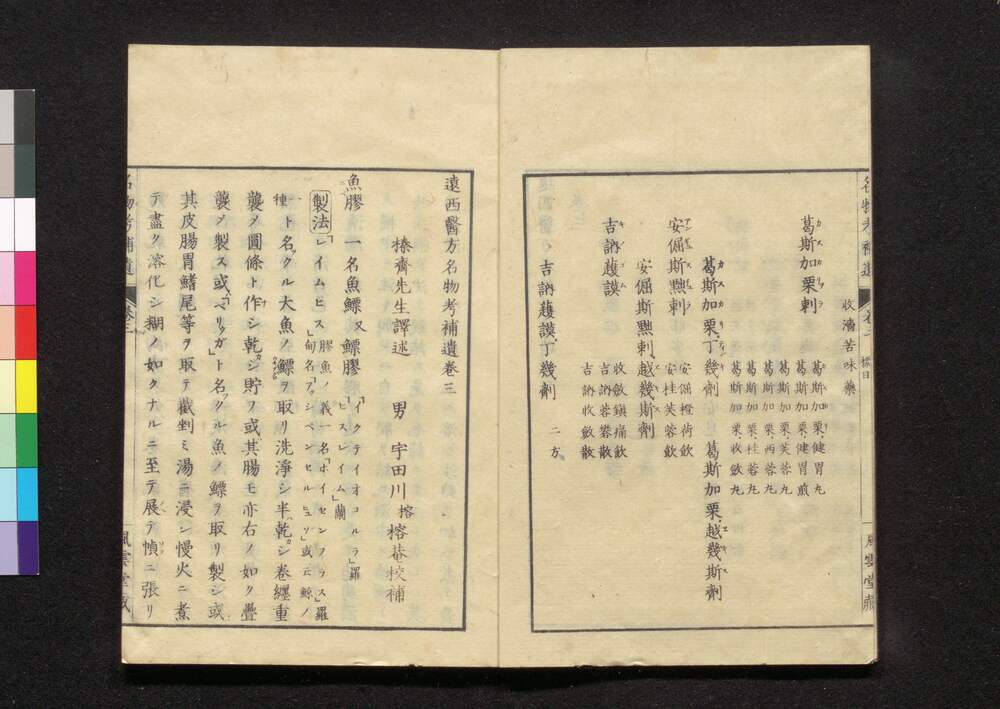 収濇苦味藥
葛斯加栗剌
葛斯加栗、健胃丸
葛斯加栗、健胃煎
葛斯加栗、芙蓉丸
葛斯加栗、西蓉丸
葛斯加栗、桂蓉丸
葛斯加栗、收斂丸
葛斯加栗、丁幾劑　葛斯加栗、越幾斯劑
安倔斯㸃剌
安倔橙荷飲
安桂芙蓉飲
安倔斯㸃剌越幾斯劑
吉訥葭謨
收斂鎮痛飲
吉訥蓉礬散
吉訥收斂散
吉訥葭謨丁幾劑　二方
遠西醫方名物考補遺卷三
榛齋先生譯述　男　宇田川榕　榕菴校補
魚膠　一名魚鰾又鰾膠「イクテイオコルラ」羅「ヒスレイム」蘭
製法「レイムヒス」膠魚ノ義一名「ホイセンフラス」羅
一種ト名クル大魚ノ鰾ヲ取リ洗淨シ半乾シ卷纏重
襲ノ圓條ト作シ乾シ貯フ或其腸モ亦右ノ如ク疊
襲ノ製ス或「ベリカ」ト名クル魚ノ鰾ヲ取リ製シ或
其皮腸胃鰭尾等ヲ取テ截剉ミ湯ニ浸シ慢火ニ煮
テ盡ク溶化シ糊ノ如クナルニ至テ展テ幀ニ張リ